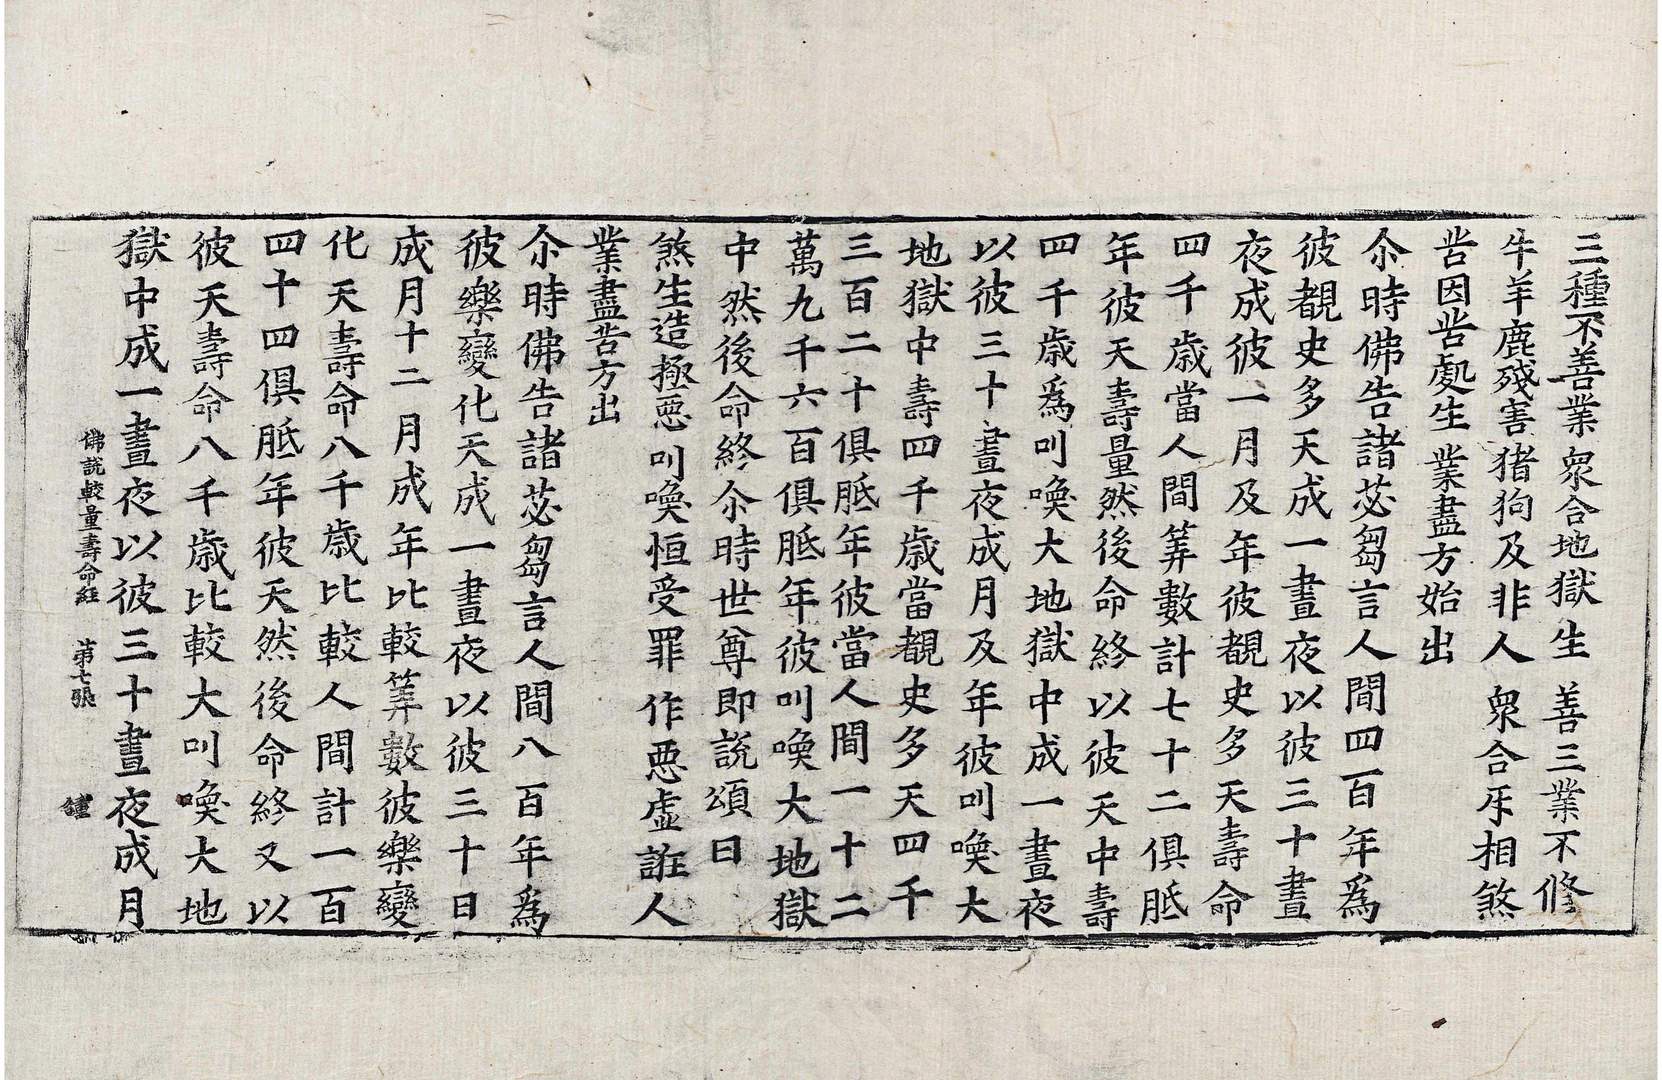 三種不善業 衆合地獄生 善三業不修
牛羊鹿殘害 猪狗及非人 衆合㸦相煞
苦因苦處生 業盡方始出
尒時佛告諸苾芻言人間四百年爲
彼覩史多天成一晝夜以彼三十晝
夜成彼一月及年彼覩史多天壽命
四千歲當人間筭數計七十二俱胝
年彼天壽量然後命終以彼天中壽
四千歲爲叫喚大地獄中成一晝夜
以彼三十晝夜成月及年彼叫喚大
地獄中壽四千歲當覩史多天四千
三百二十俱胝年彼當人間一十二
萬九千六百俱胝年彼叫喚大地獄
中然後命終尒時世尊即說頌曰
煞生造極惡 叫喚恒受罪 作惡虛誑人
業盡苦方出
尒時佛告諸苾芻言人間八百年爲
彼樂變化天成一晝夜以彼三十日
成月十二月成年比較筭數彼樂變
化天壽命八千歲比較人間計一百
四十四俱胝年彼天然後命終又以
彼天壽命八千歲比較大叫喚大地
獄中成一晝夜以彼三十晝夜成月
佛說較量壽命經 第七張 鍾